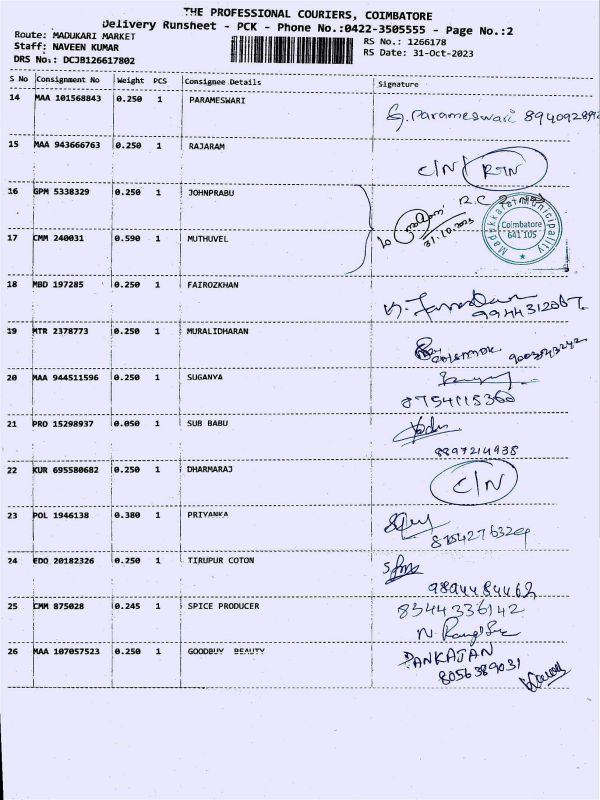 THE PROFESSIONAL COURIERS, COIMBATORE
Delivery Runsheet - PCK - Phone No.:0422-3505555 - Page No.:2
Route: MADUKARI MARKET
RS No.: 1266178
Staff: NAVEEN KUMAR
RS Date: 31-Oct-2023
DRS No.: DCJB126617802
S No Consignment No Weight PCS Consignee Details Signature
14 MAA 101568843 0.250 1 PARAMESWARI G. Parameswari
15 MAA 943666763 0.250 1 RAJARAM C/N RTN
16 GPM 5338329 0.250 1 JOHNPRABU
Coimbatore
641 105
17 CMM 240031 0.590 1 MUTHUVEL 31.10.2023
18 MBD 197285 0.250 1 FAIROZKHAN
19 MTR 2378773 0.250 1 MURALIDHARAN
20 MAA 944511596 0.250 1 SUGANYA
8754115360
21 PRO 15298937 0.050 1 SUB BABU
8897214938
22 KUR 695580682 0.250 1 DHARMARAJ C/N
23 POL 1946138 0.380 1 PRIYANKA
24 EDO 20182326 0.250 1 TIRUPUR COTON
9894484462
25 CMM 875028 0.245 1 SPICE PRODUCER 8344336142
26 MAA 107057523 0.250 1 GOODBUY BEAUTY PANKAJAN
8056389031